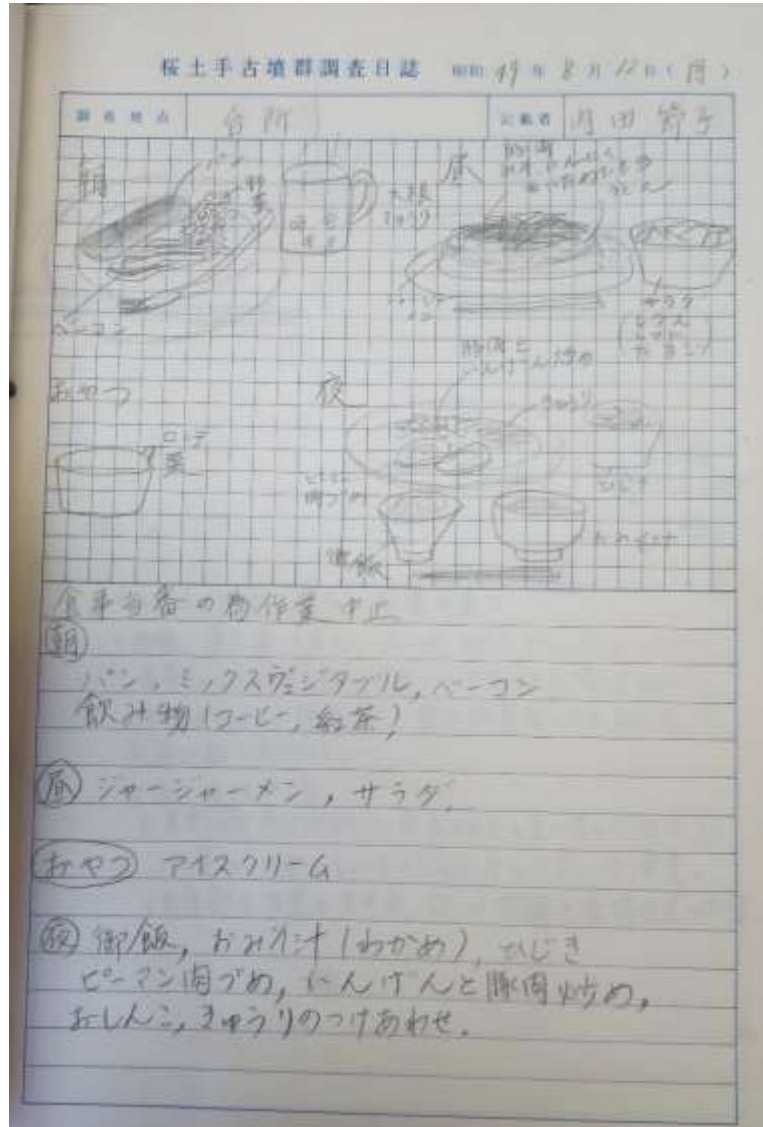 桜土手古墳群調査日誌 昭和49年8月12日(月)
調査地点 台所 記載者 田 節子
朝
パン
野菜
ベーコン
昼
大根
きゅうり
サラダ
おやつ
ロッテ
夜
豚肉と
いんげん炒め
きゅうり
ひじき
ピーマン
肉づめ
御飯
わかめ汁
食事当番の為作業中止
朝
パン, ミックスヴェジタブル, ベーコン
飲み物(コーヒー, 紅茶)
昼 ジャージャーメン, サラダ.
おやつ アイスクリーム
夜 御飯, おみそ汁(わかめ), ひじき
ピーマン肉づめ, いんげんと豚肉炒め,
おしんこ, きゅうりのつけあわせ.